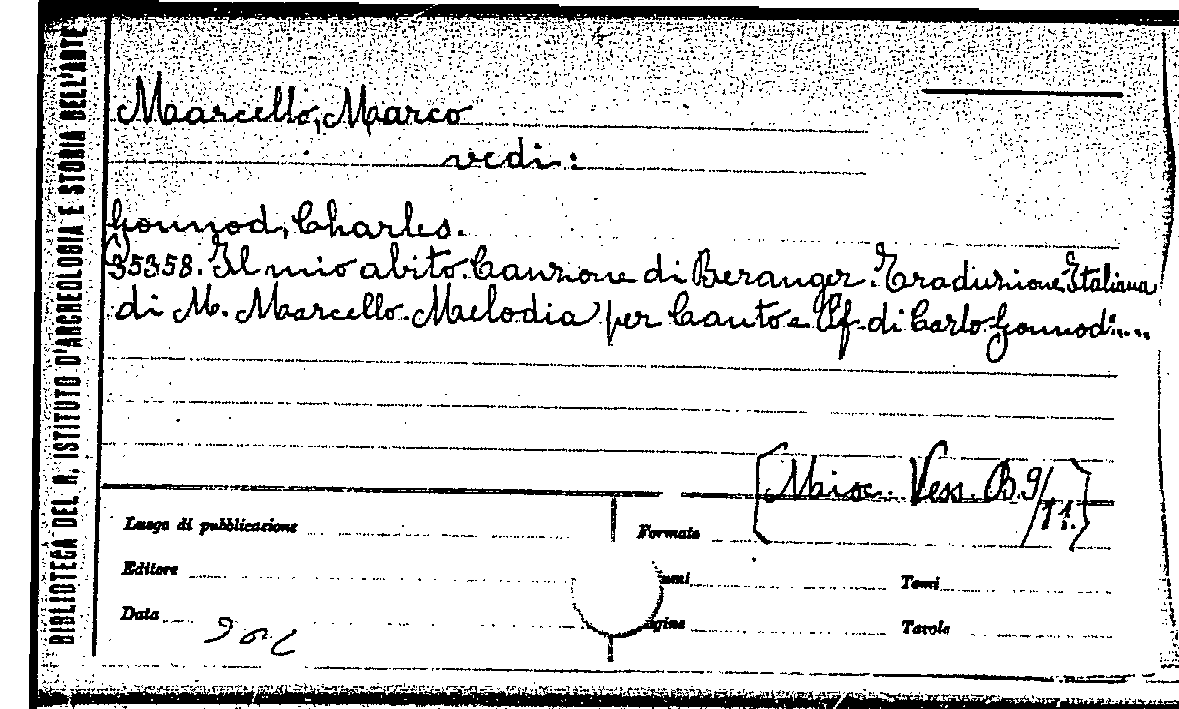 BIBLIOTECA DEL R. ISTITUTO D'ARCHEOLOGIA E STORIA DELL'ARTE
Marcello, Marco
vedi:
Gounod, Charles.
35358. Il mio abito. Canzone di Beranger. Traduzione Italiana
di M. Marcello. Melodia per Canto e Pf. di Carlo Gounod:....
[Misc. Vess. B.9/11.]
Luogo di pubblicazione
Formato
Editore
umi
Tomi
Data
agine
Tavole